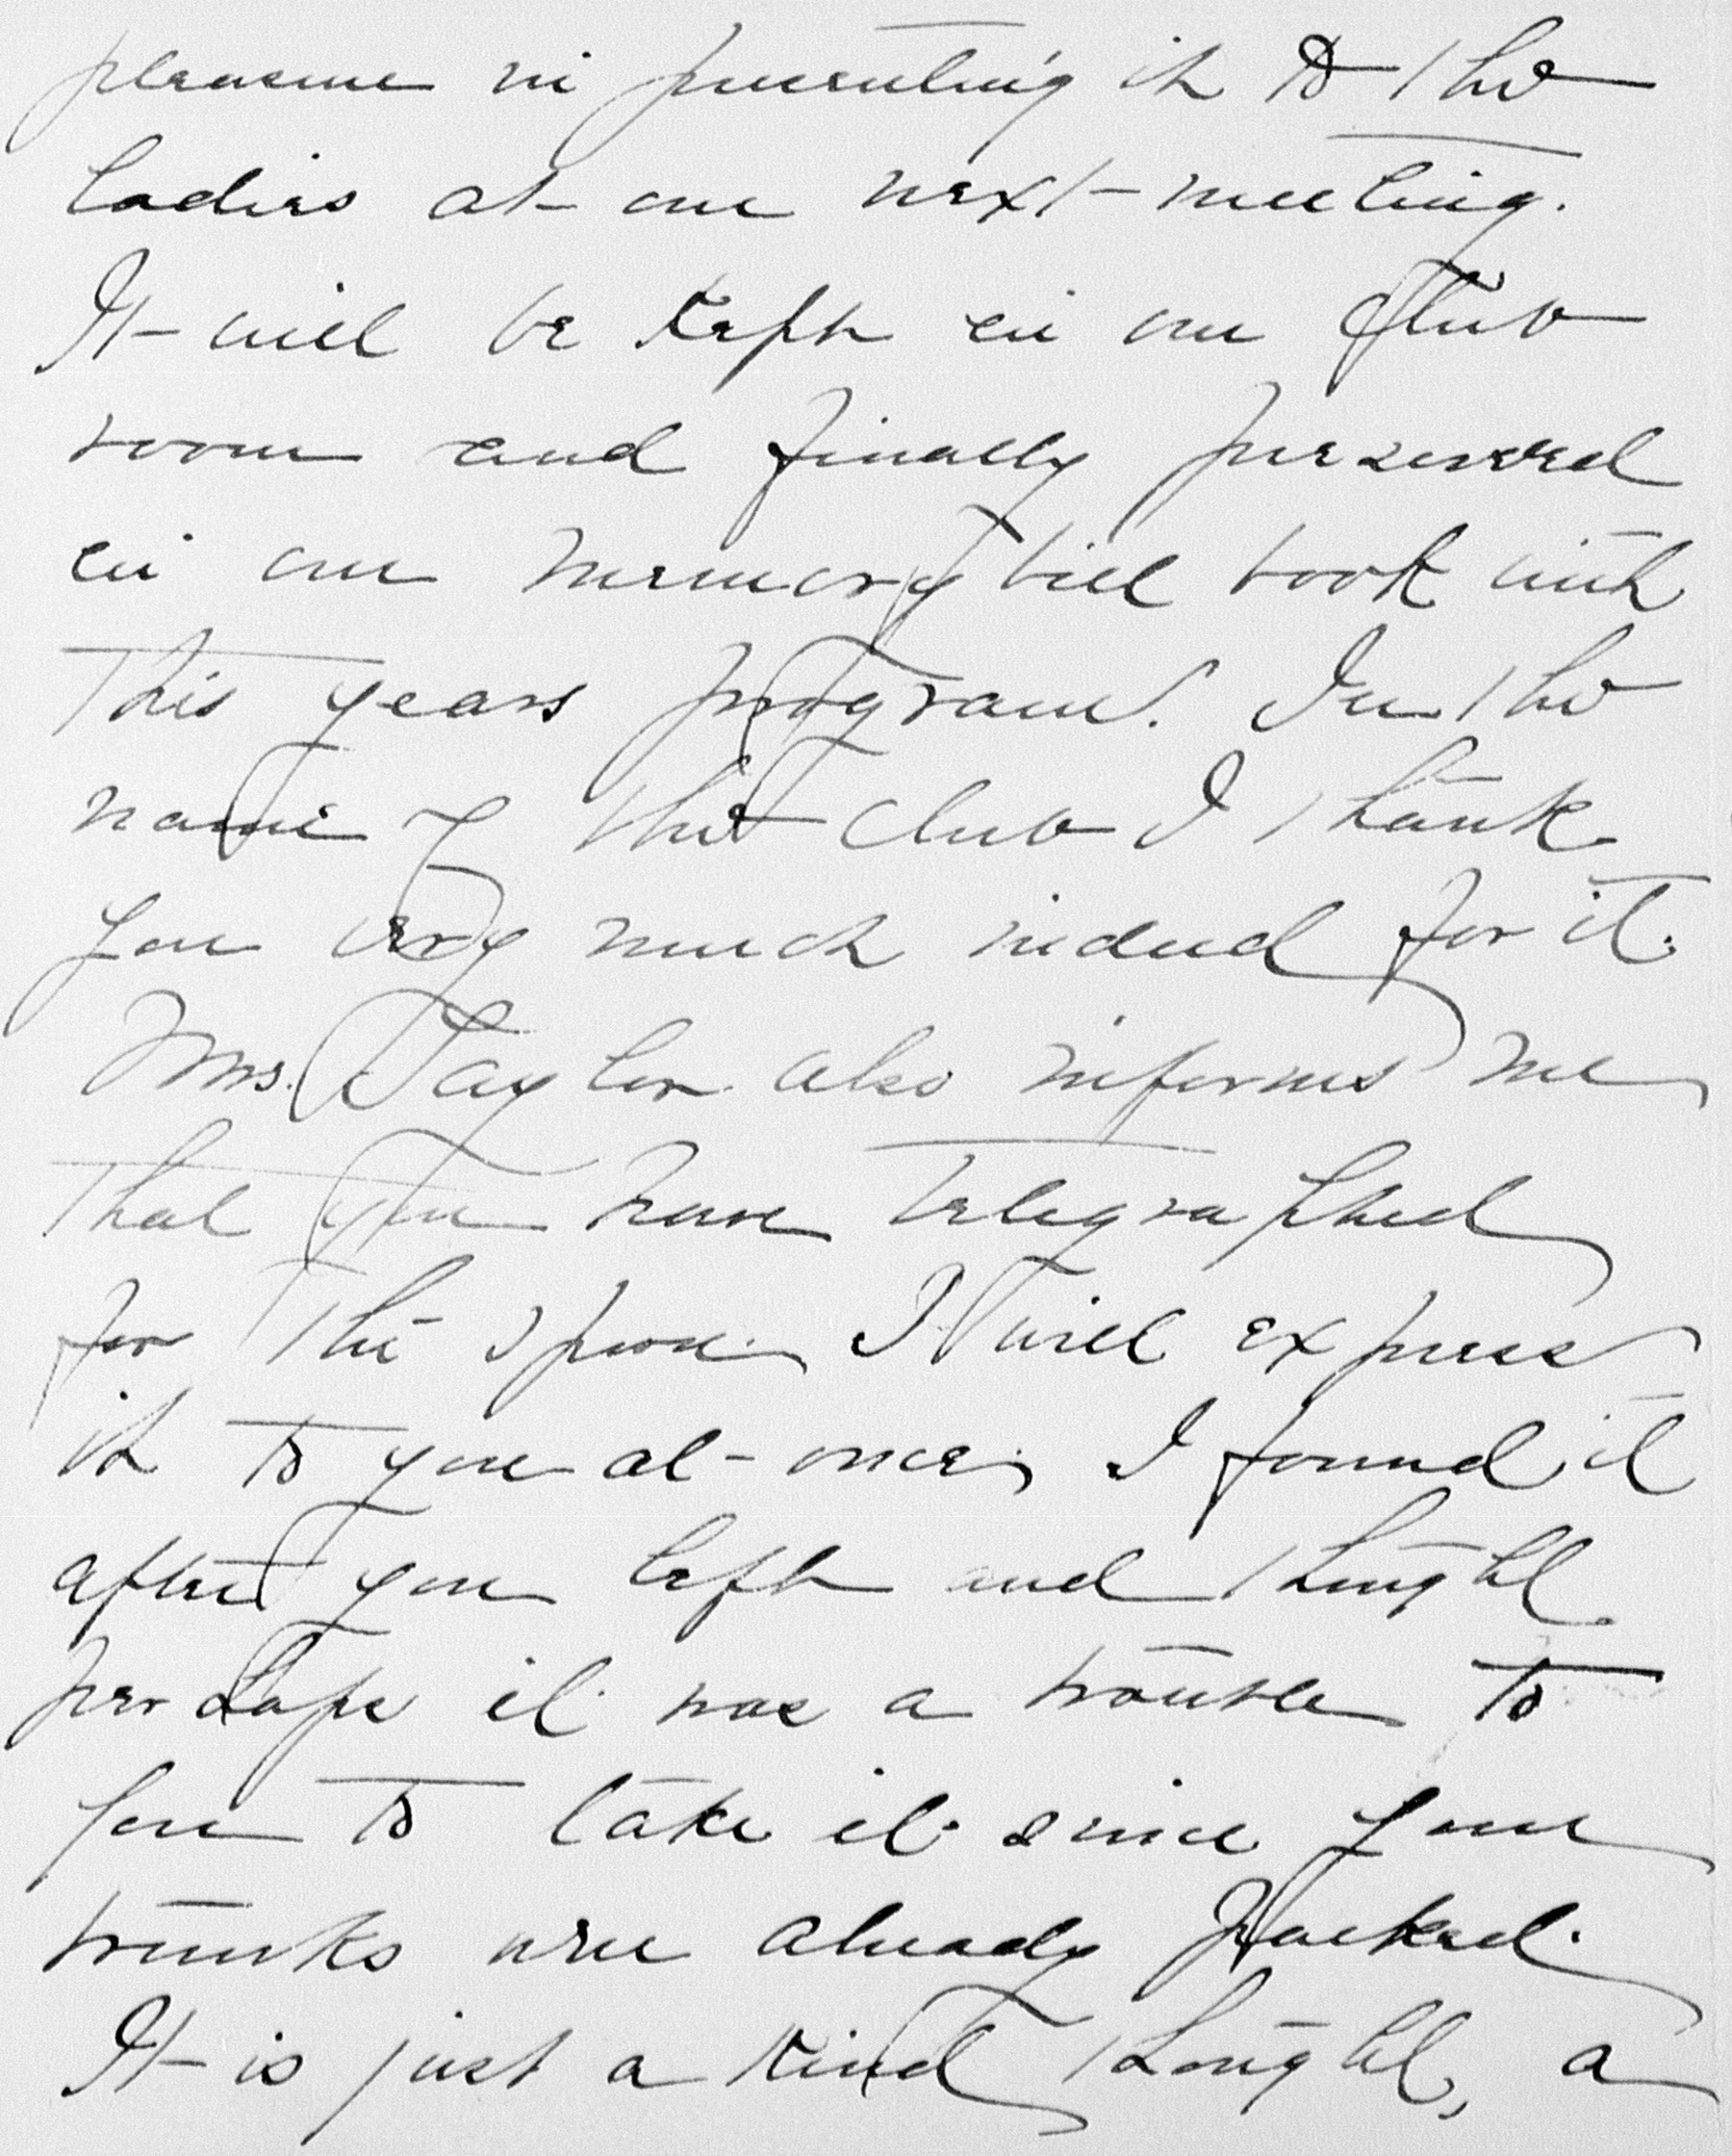 pleasure in presenting it to the
ladies at our next meeting.
It will be kept in our Club
room and finally preserved
in our memory bill book with
this years program. In the
name of the Club I thank
you very much indeed for it.
Mrs. Taylor also informs me
that you have telegraphed
for the spoon. I will express
it to you at once, I found it
after you left and thought
perhaps it was a trouble to
you to take it since your
trunks were already packed.
It is just a kind thought, a